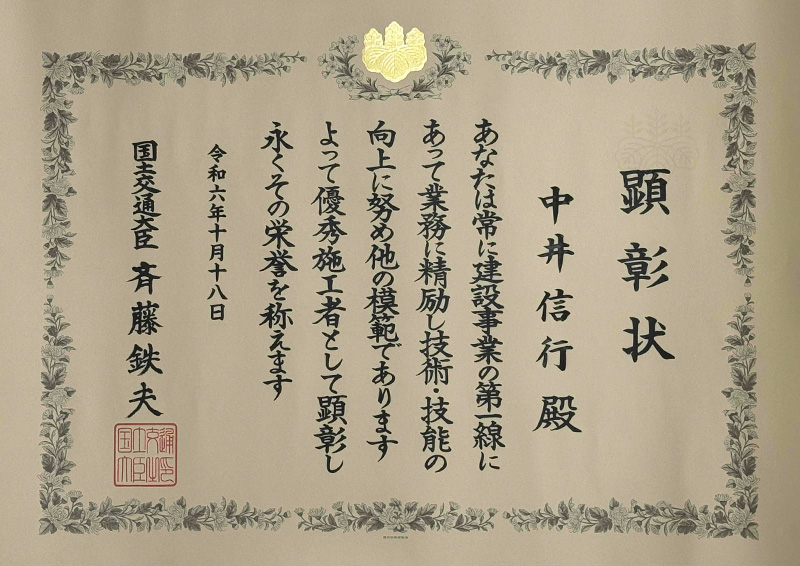 顕彰状
中井信行殿
あなたは常に建設事業の第一線に
あって業務に精励し技術・技能の
向上に努め他の模範であります
よって優秀施工者として顕彰し
永くその栄誉を称えます
令和六年十月十八日
国土交通大臣 斉藤鉄夫
国土交通
大臣之印